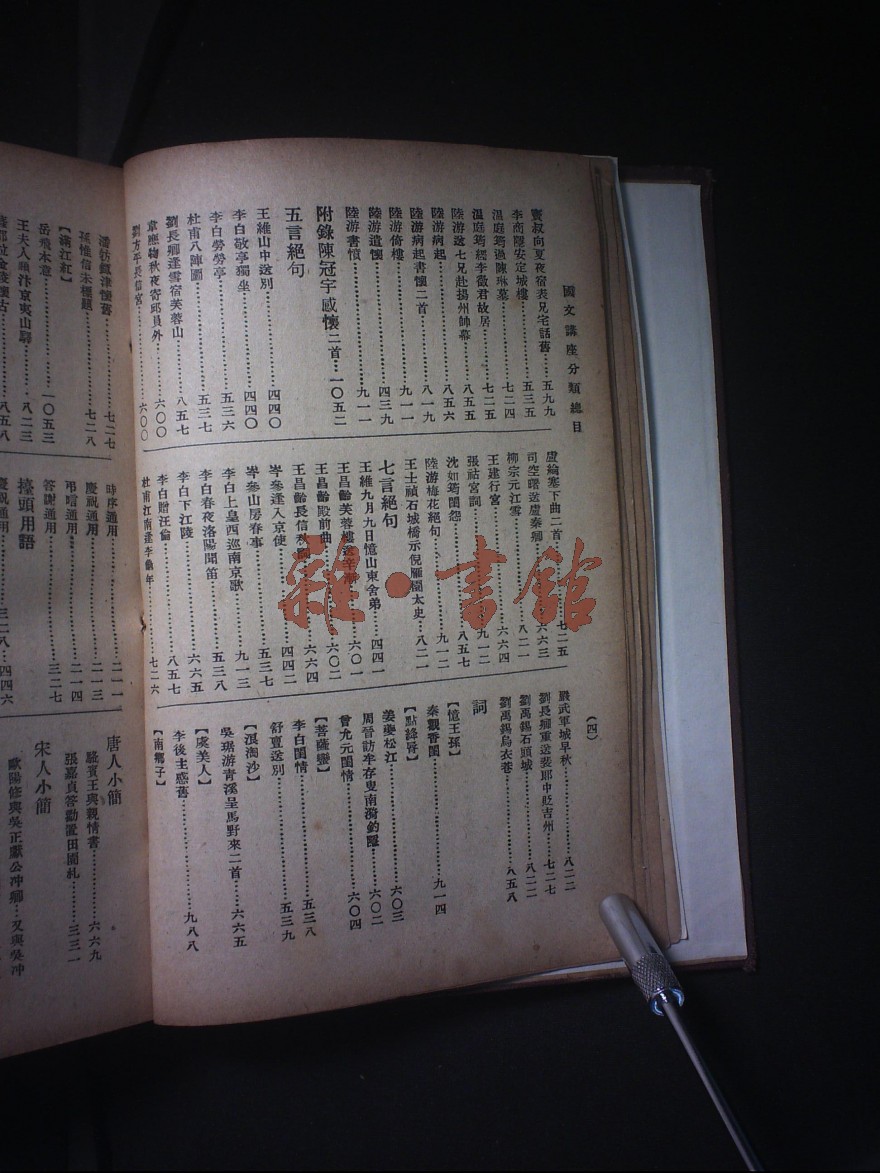 國文講座分類總目
(四)
竇叔向夏夜宿表兄宅話舊…五九九
李商隱安定城樓…五三五
溫庭筠過陳琳墓…七二四
溫庭筠經李徵君故居…七二五
陸游送七兄赴揚州帥幕…八五五
陸游病起…八五六
陸游病起書懷二首…八一九
陸游倚樓…九一一
陸游遣懷…四三九
陸游書憤…九一一
附錄陳冠宇感懷二首…一〇五二
五言絕句
王維山中送別…四四〇
李白敬亭獨坐…四四〇
李白勞勞亭…五三六
杜甫八陣圖…五三七
劉長卿逢雪宿芙蓉山…八五七
韋應物秋夜寄邱員外…六〇〇
劉方平長信宮…六〇〇
盧綸塞下曲二首…七二五
司空曙送盧秦卿…六六三
柳宗元江雪…八二一
王建行宮…六六四
張祜宮詞…九一二
沈如筠閨怨…八五七
陸游梅花絕句…九一二
王士禎石城橋示倪雁園太史…八二一
七言絕句
王維九月九日憶山東舍弟…四四一
王昌齡芙蓉樓送辛漸…六〇一
王昌齡殿前曲…六〇二
王昌齡長信秋詞…六六四
岑參逢入京使…四四二
岑參山房春事…五三七
李白上皇西巡南京歌…九一三
李白春夜洛陽聞笛…五三八
李白下江陵…六六五
李白贈汪倫…八五七
杜甫江南逢李龜年…七二六
嚴武軍城早秋…八二二
劉長卿重送裴郎中貶吉州…七二七
劉禹錫石頭城…八二二
劉禹錫烏衣巷…八五八
詞
【憶王孫】
秦觀春閨…九一四
【點絳唇】
姜夔松江…六〇三
周晉訪牟存叟南漪釣隱…六〇二
曾允元閨情…六〇四
【菩薩蠻】
李白閨情…五三八
舒亶送別…五三九
【浪淘沙】
吳琚游青溪呈馬野來二首…六六五
【虞美人】
李後主感舊…九八八
【南鄉子】
潘牥鐔津懷舊…七二七
孫惟信未標題…七二八
【滿江紅】
岳飛本意…一〇五三
王夫人題汴京夷山驛…八二三
金陵懷古…八五八
時序通用…二一一
慶祝通用…二一三
弔唁通用…二一四
答謝通用…三二七
擡頭用語
慶祝通用…三二八…四四六
唐人小簡
駱賓王與親情書…六六九
張嘉貞答勸置田園札…三三一
宋人小簡
歐陽修與吳正獻公冲卿…又與吳冲